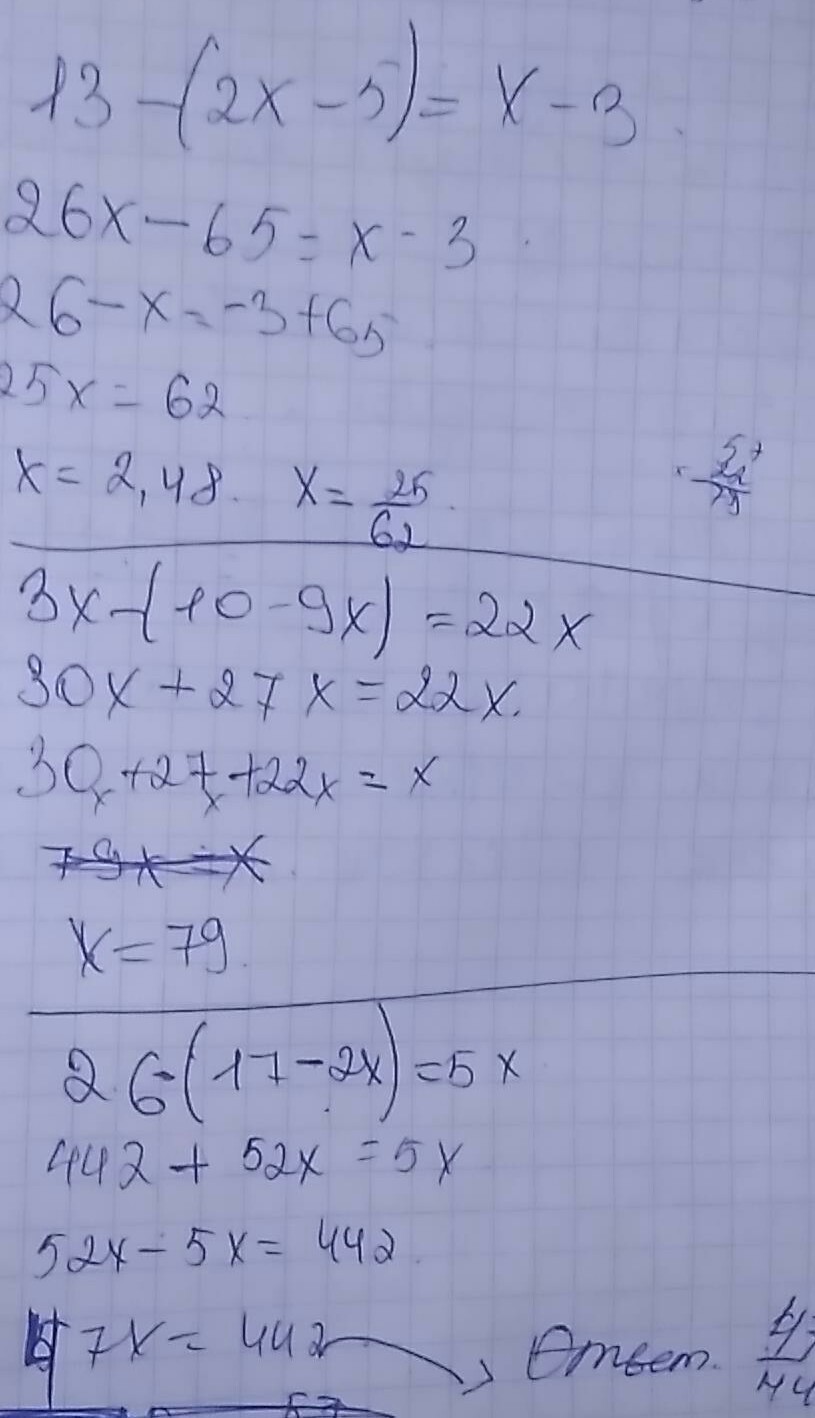 13-(2x-5)=x-3
26x-65=x-3
26-x=-3+65
25x=62
x=2,48. x=25/62
3x-(10-9x)=22x
30x+27x=22x.
30x+27x+22x=x
79x=x
x=79
26-(17-2x)=5x
442+52x=5x
52x-5x=442
47x=442 Ответ.